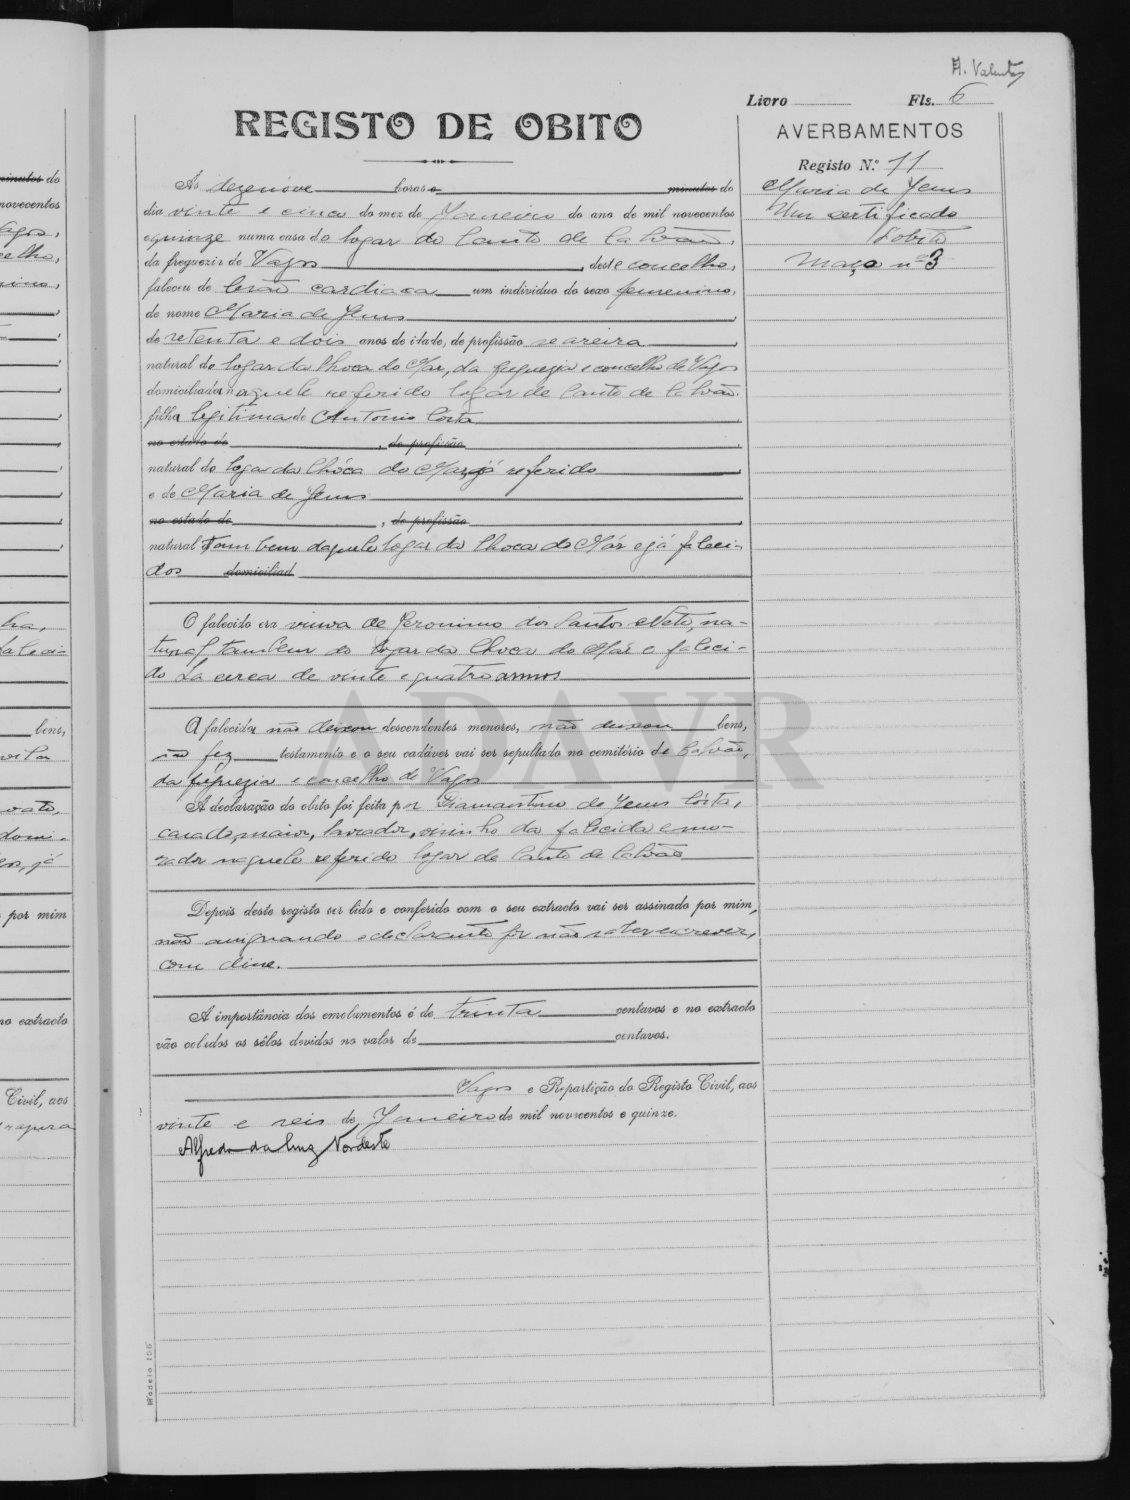 A. Valente
Livro Fls. 6
REGISTO DE OBITO
AVERBAMENTOS
Registo N.º 11
Maria de Jesus
Um certificado
d'obito
Maço nº 3
Ás dezenove horas e minutos do
dia vinte e cinco do mez de Janeiro do ano de mil novecentos
e quinze numa casa do logar do Canto de Calvão,
da freguezia de Vagos, deste concelho,
faleceu de lesão cardiaca um individuo do sexo femenino,
de nome Maria de Jesus,
de setenta e dois anos de idade, de profissão seareira,
natural do logar da Choca do Mar, da freguezia e concelho de Vagos
domiciliada naquele referido logar de Canto de Calvão,
filha legitima de Antonio Costa
no estado de , de profissão
natural do logar da Chóca do Mar, já referido,
e de Maria de Jesus
no estado de , de profissão ,
natural tambem daquele logar da Choca do Már e já faleci-
dos domiciliad
O falecido era viuva de Jeronimo dos Santos Neto, na-
tural tambem do logar da Choca do Már e faleci-
do há cerca de vinte e quatro annos
A falecida não deixou descendentes menores, não deixou bens,
não fez testamento e o seu cadáver vai ser sepultado no cemitério de Calvão,
da freguezia e concelho de Vagos
A declaração do obito foi feita por Diamantino de Jesus Córta,
casado, maior, lavrador, visinho da falecida e mo-
rador naquele referido logar de Canto de Calvão
Depois deste registo ser lido e conferido com o seu extracto vai ser assinado por mim,
não assignando o declarante por não saber escrever,
com disse.
A importância dos emolumentos é de trinta centavos e no extracto
vão colados os sêlos devidos no valor de centavos.
Vagos e Repartição do Registo Civil, aos
vinte e seis de Janeiro de mil novecentos e quinze.
Alfredo da Luz Nordeste
ADAVR
Modelo 156
minutos do
novecentos
Vagos,
bens,
por mim
no extracto
Civil, aos